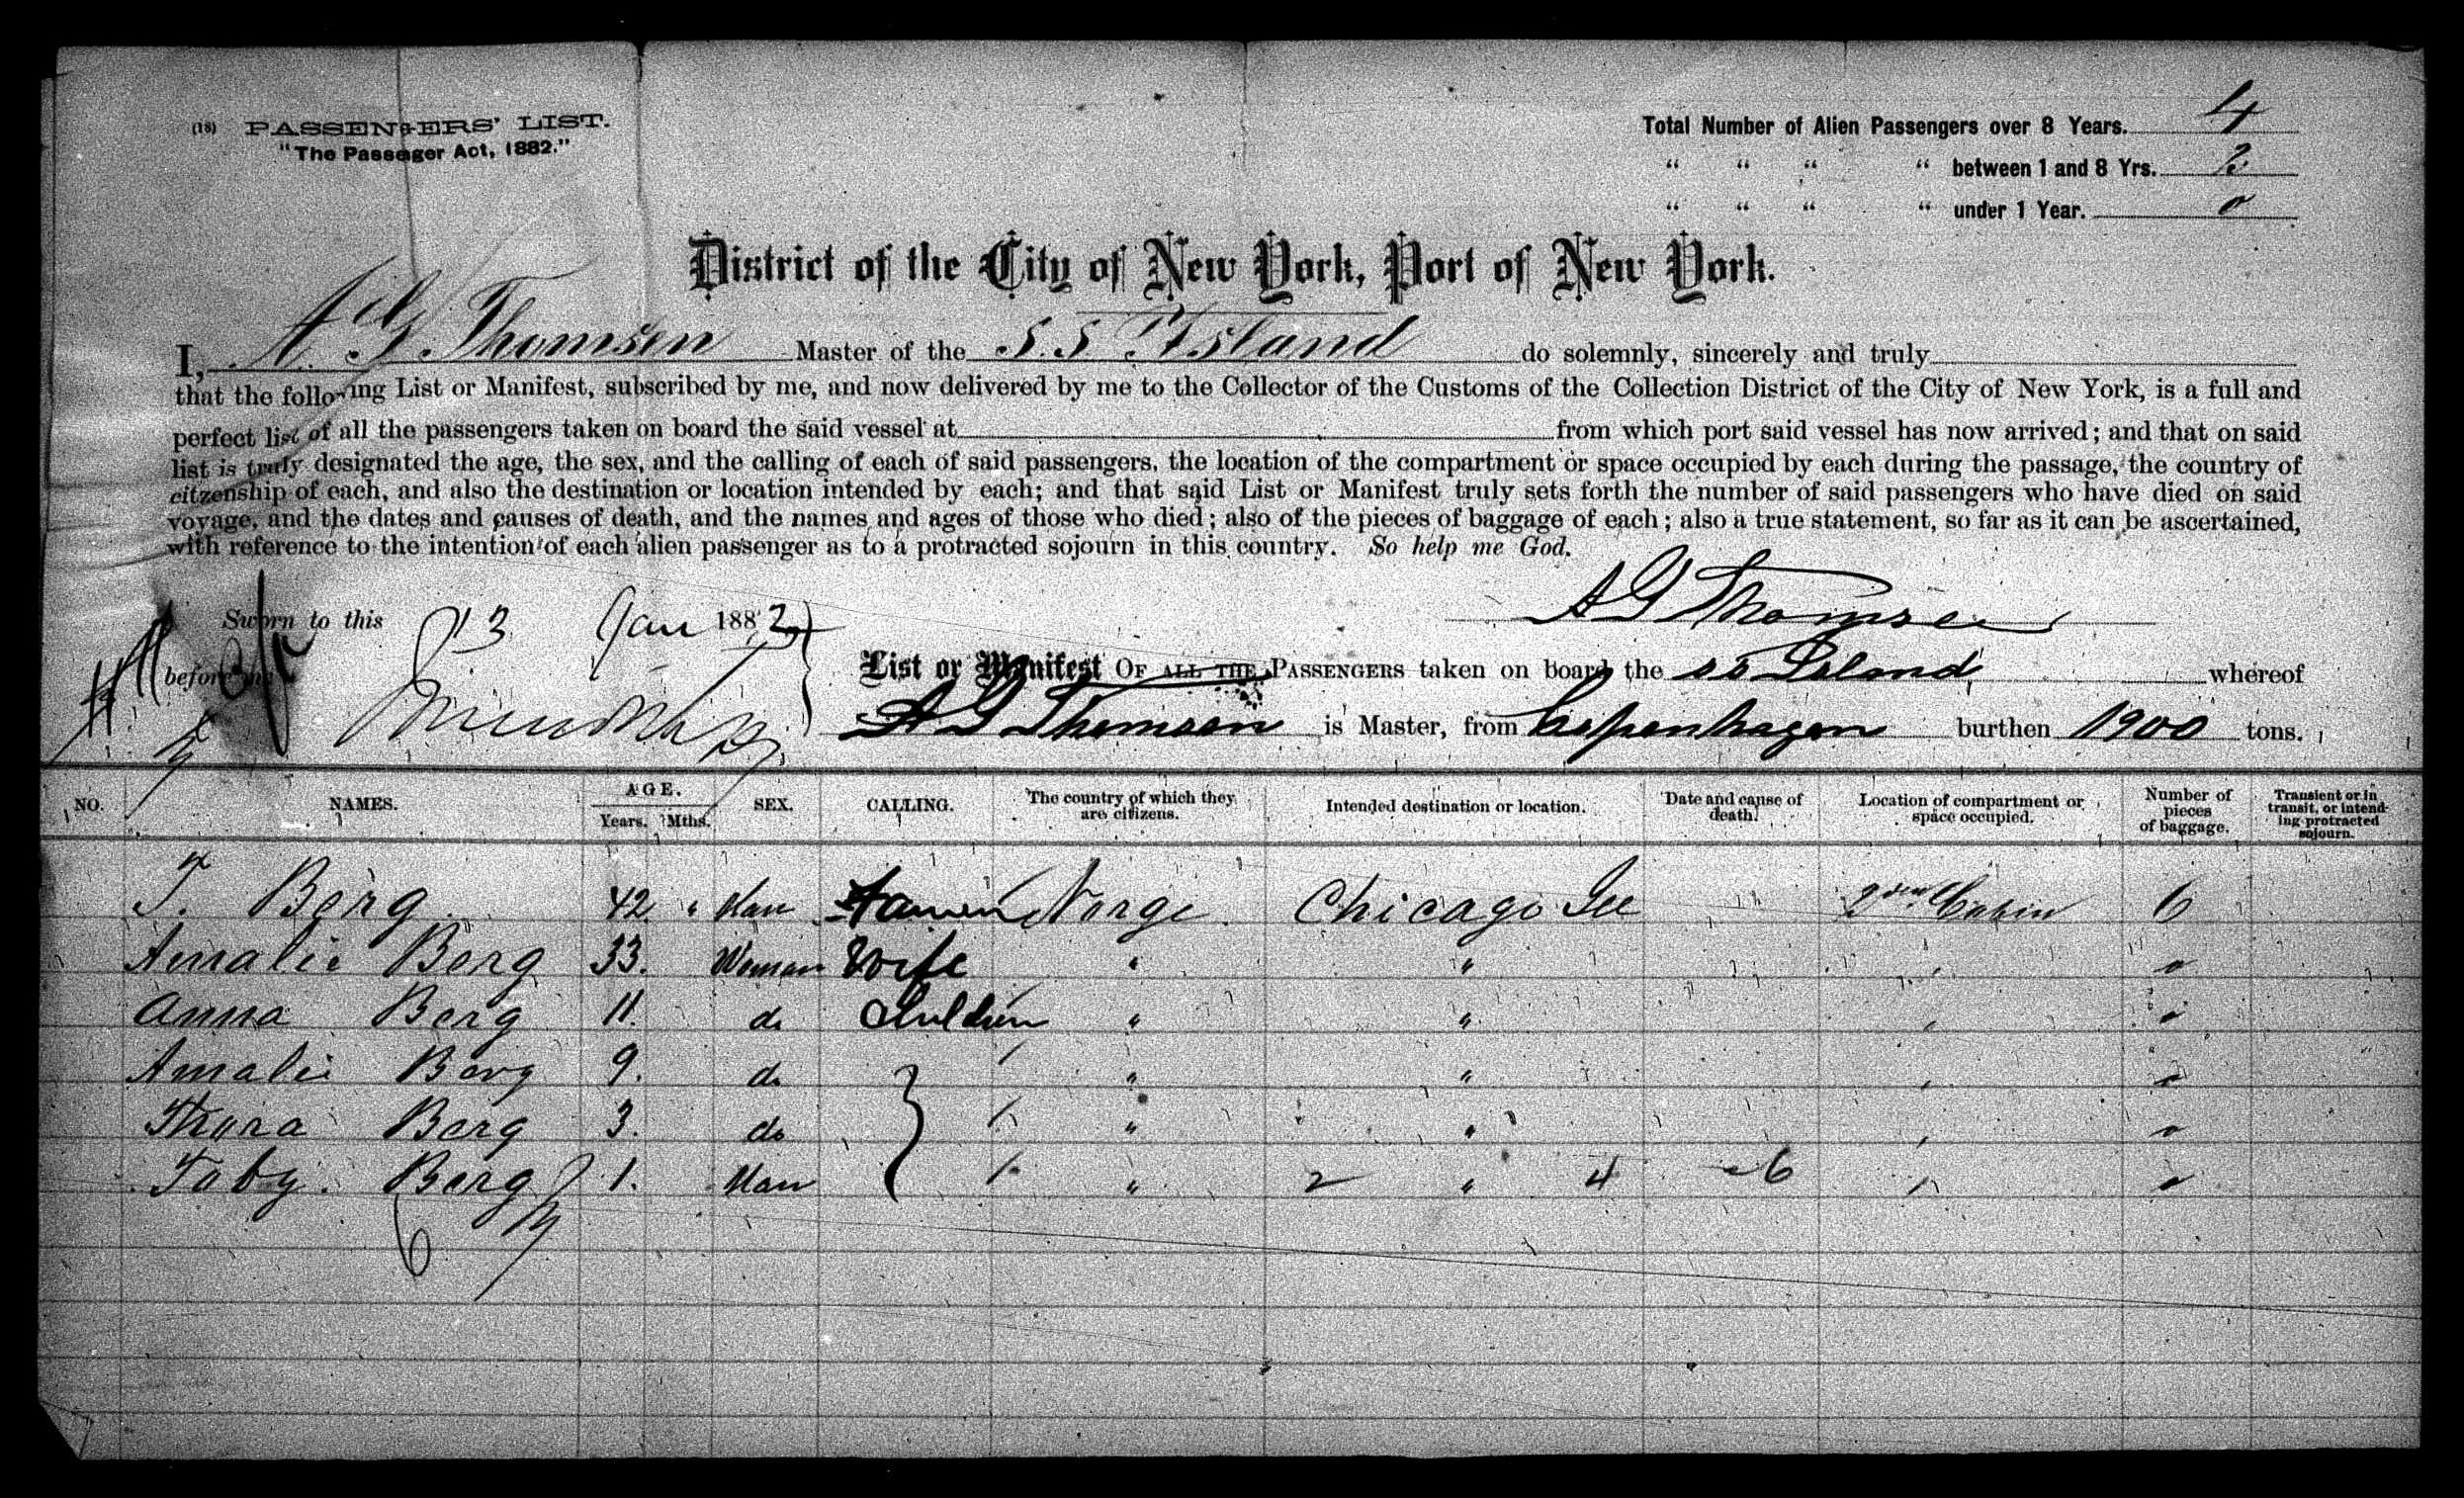 (18) PASSENGERS' LIST.
"The Passenger Act, 1882."
Total Number of Alien Passengers over 8 Years. 4
" " " " between 1 and 8 Yrs. 2
" " " " under 1 Year. 0
District of the City of New York, Port of New York.
I, A. G. Thomsen Master of the S.S. Island do solemnly, sincerely and truly
that the following List or Manifest, subscribed by me, and now delivered by me to the Collector of the Customs of the Collection District of the City of New York, is a full and
perfect list of all the passengers taken on board the said vessel at from which port said vessel has now arrived; and that on said
list is truly designated the age, the sex, and the calling of each of said passengers, the location of the compartment or space occupied by each during the passage, the country of
citzenship of each, and also the destination or location intended by each; and that said List or Manifest truly sets forth the number of said passengers who have died on said
voyage, and the dates and causes of death, and the names and ages of those who died; also of the pieces of baggage of each; also a true statement, so far as it can be ascertained,
with reference to the intention of each alien passenger as to a protracted sojourn in this country. So help me God.
A G Thomsen
Sworn to this 13 Jan 1883
before me
List or Manifest OF ALL THE PASSENGERS taken on board the ss Island whereof
A G Thomsen is Master, from Copenhagen burthen 1900 tons.
NO. NAMES. AGE. Years. Mths. SEX. CALLING. The country of which they are citizens. Intended destination or location. Date and cause of death. Location of compartment or space occupied. Number of pieces of baggage. Transient or in transit, or intending protracted sojourn.
T. Berg 42 " Man Norge Chicago 2den Cabin 6
Amalie Berg 33. Woman Wife " " " 0
Anna Berg 11. do Children " " " 0
Amalie Berg 9. do " " " 0
Thora Berg 3. do " " " 0
Toby. Berg 1. Man " 2 " 4 6 " 0
6